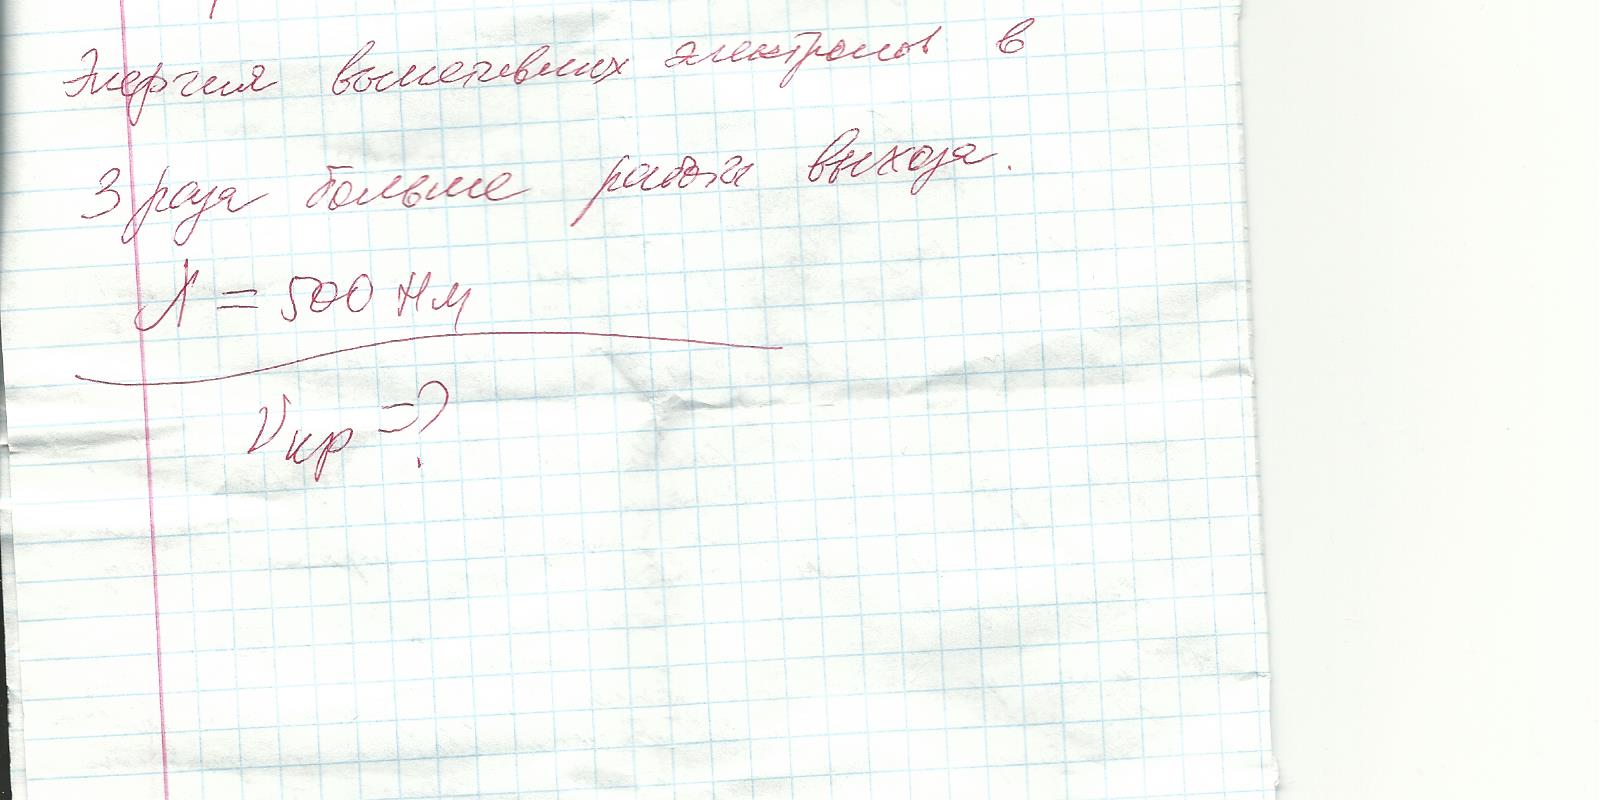 Энергия вылетевших электронов в
3 раза больше работы выхода.
λ = 500 нм
ν кр = ?